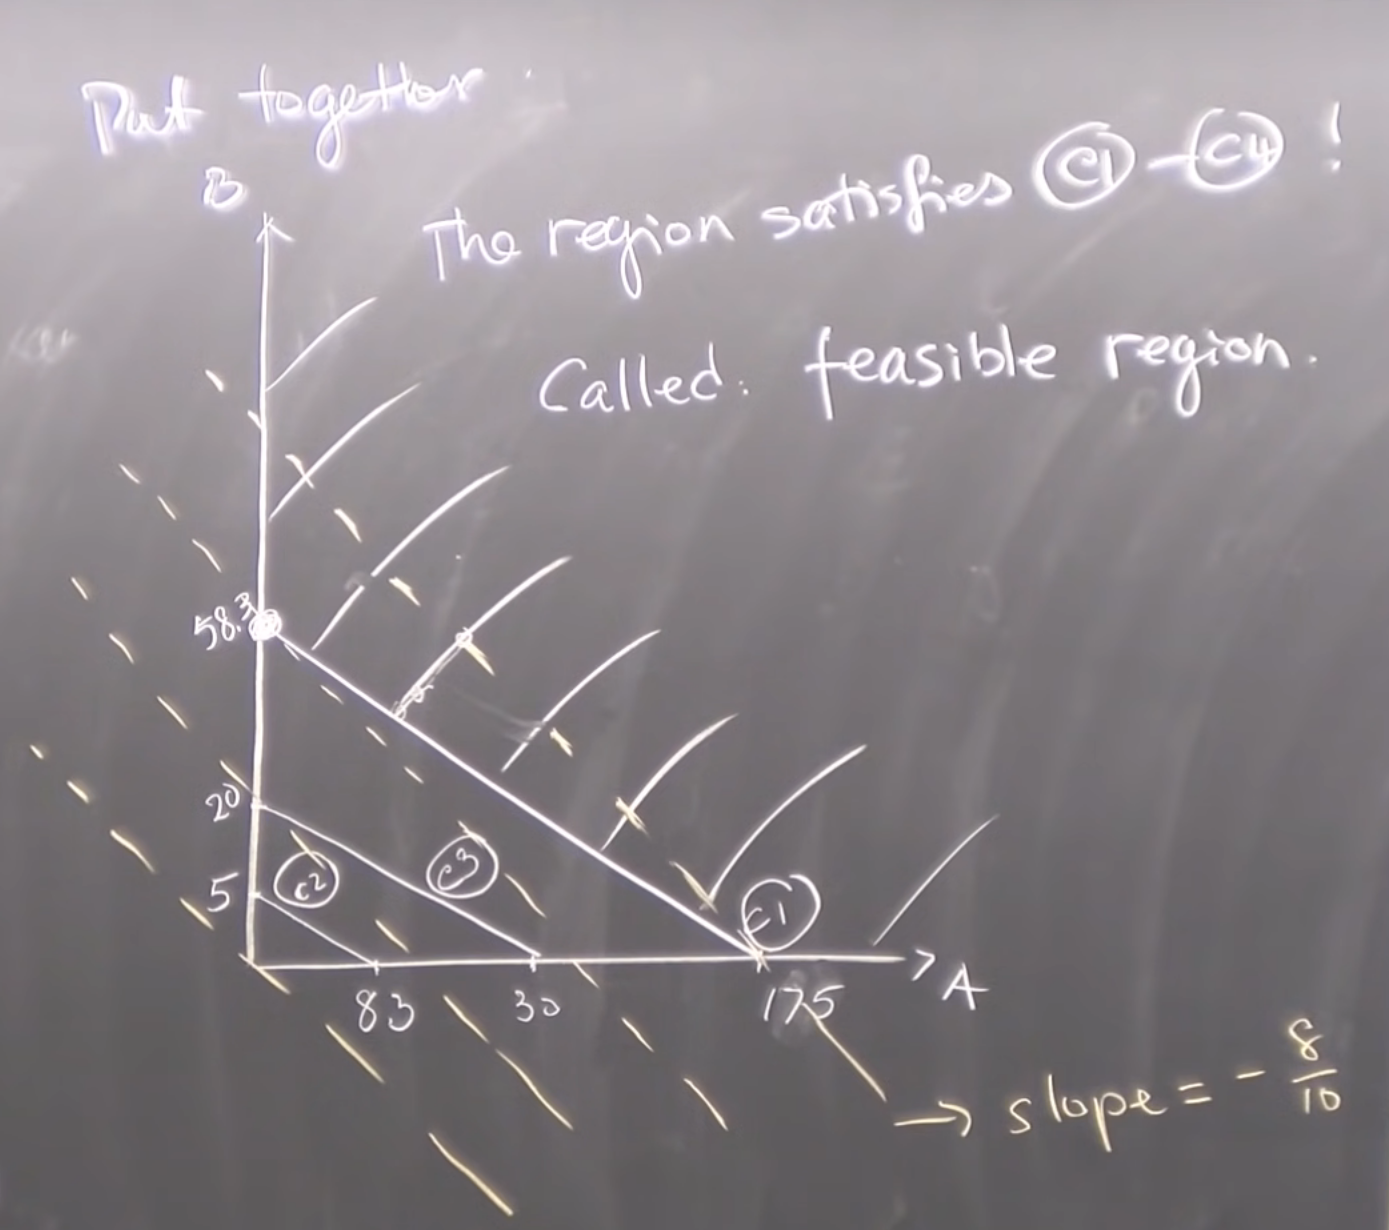 Put together.
The region satisfies C1 - C4 !
Called: feasible region.
B
58.3
20
5
C2
C3
C1
83
30
175
A
→ slope = - 8/10